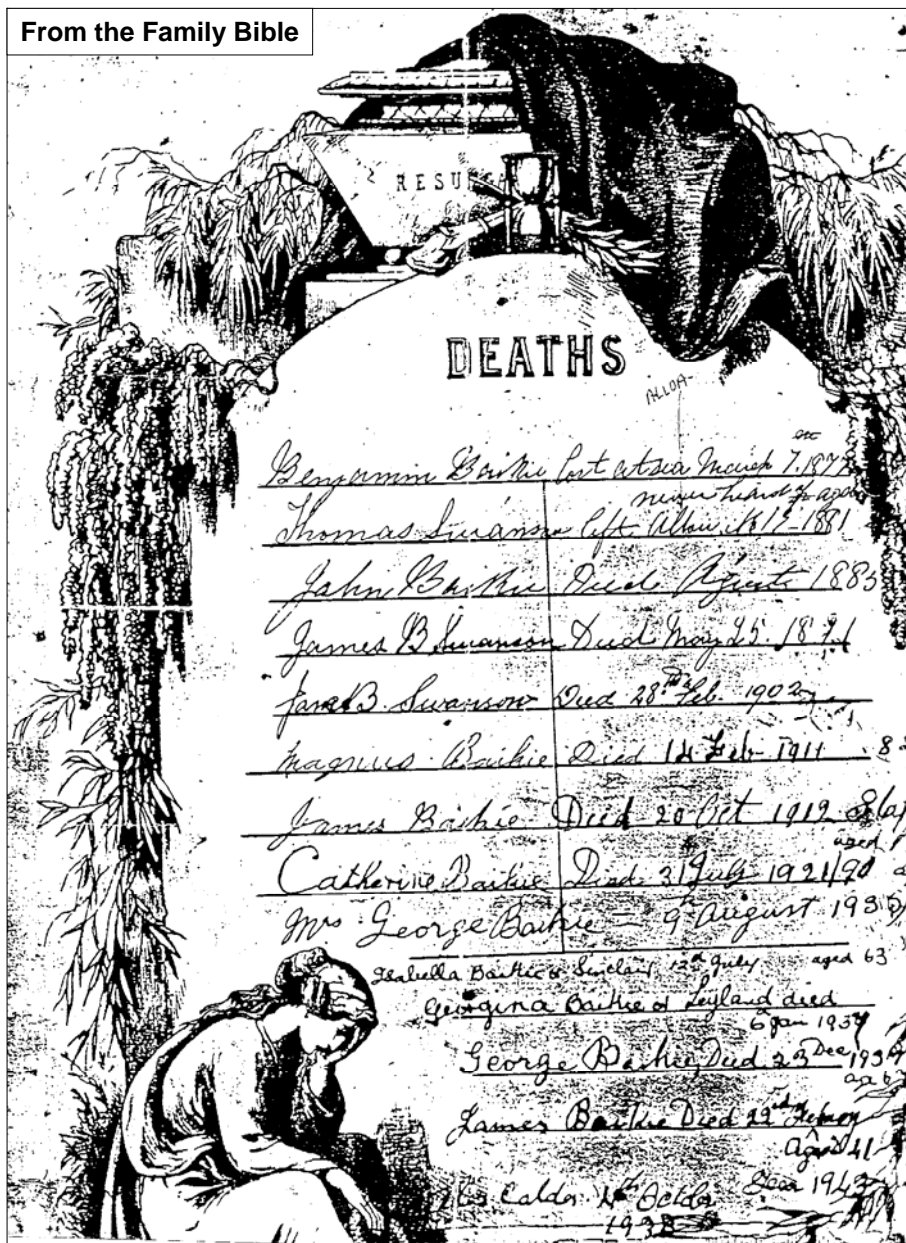 From the Family Bible
RESU
DEATHS
ALLOA
Benjamin Baikie lost at sea March 7. 187
never heard of again
Thomas Swanson left Alloa 1881
John Baikie Died Agust 1883
James B Swanson Died May 25. 18
B. Swanson Died 28th Feb. 1902
Magnus Baikie Died 14 Feb 1911 8
James Baikie Died 20 Oct 1912
aged
Catherine Baikie Died 31 July 1921
Mrs George Baikie — 9th August 193
Isabella Baikie or Sinclair 12th July aged 63
Georgina Baikie or Leyland died
6 Jan 1937
George Baikie Died 23 Dec 193
James Baikie Died 22nd
Aged 41
Calder 4th October Year 194
1938